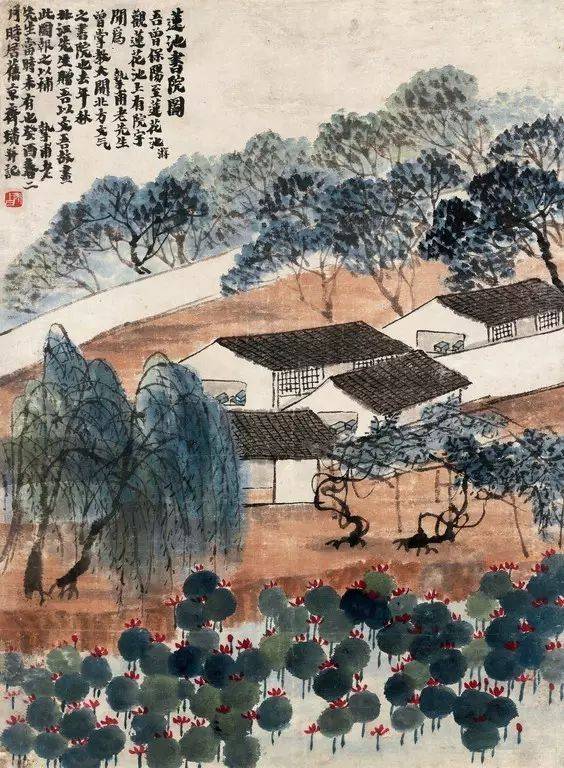 蓮池書院圖
吾曾保陽至蓮花池游
觀蓮花池上有院宇
聞為 摯甫老先生
曾掌教大開北方文氣
之書院也去年秋
北江先生贈吾以文吾故畫
此圖報之以補 摯甫老
先生當時未有也癸酉春二
月時居舊京齊璜并記